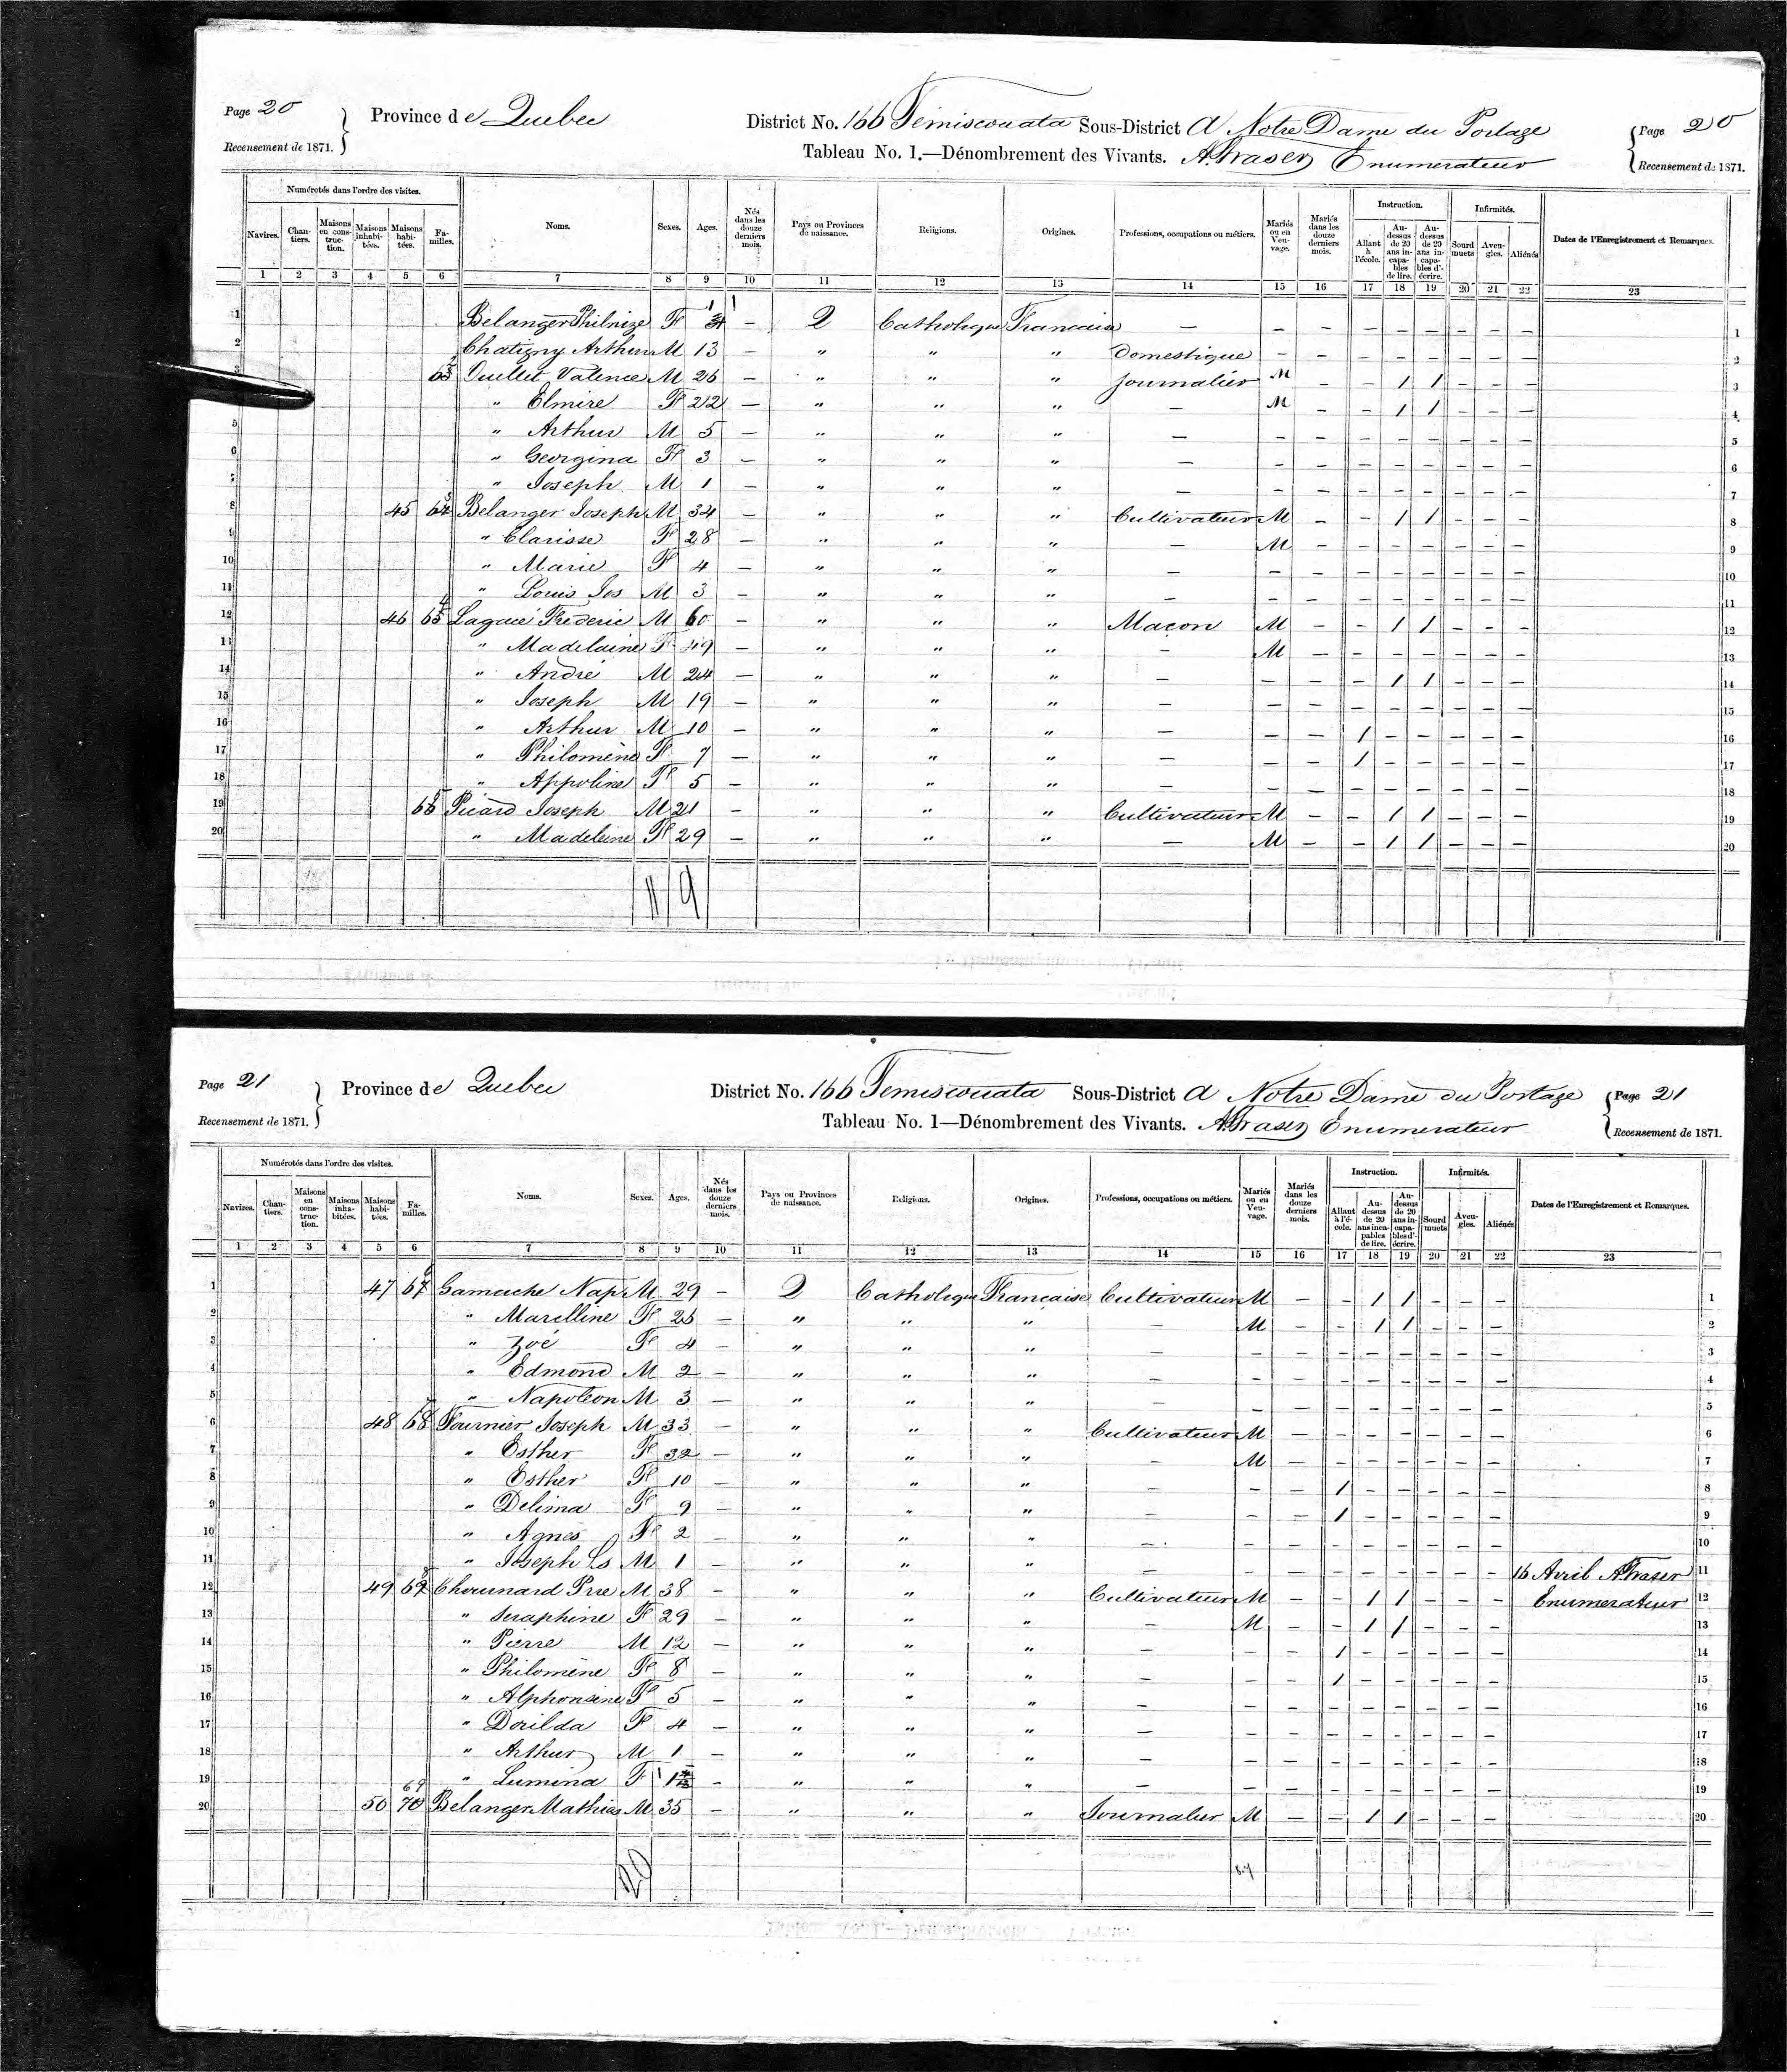 Page 20 } Province de Quebec District No. 166 Temiscouata Sous-District A Notre Dame du Portage { Page 20
Recensement de 1871. Tableau No. 1.—Dénombrement des Vivants. A. Fraser Enumerateur Recensement de 1871.
Numérotés dans l'ordre des visites. Instruction. Infirmités.
Navires. Chantiers. Maisons en construction. Maisons inhabitées. Maisons habitées. Familles. Noms. Sexes. Ages. Nés dans les douze derniers mois. Pays ou Provinces de naissance. Religions. Origines. Professions, occupations ou métiers. Mariés ou en Veuvage. Mariés dans les douze derniers mois. Allant à l'école. Au-dessus de 20 ans incapables de lire. Au-dessus de 20 ans incapables d'écrire. Sourd muets Aveugles. Aliénés Dates de l'Enregistrement et Remarques.
1 2 3 4 5 6 7 8 9 10 11 12 13 14 15 16 17 18 19 20 21 22 23
1 Belanger Philnize F — Q Catholique Francaise — — — — — — — — — 1
2 Chatigny Arthur M 13 — " " " Domestique — — — — — — — — 2
3 Ouellet Valence M 26 — " " " Journalier M — — 1 1 — — — 3
" Elmire F 22 — " " " — M — — 1 1 — — — 4
5 " Arthur M 5 — " " " — — — — — — — — — 5
6 " Georgina F 3 — " " " — — — — — — — — — 6
7 " Joseph M 1 — " " " — — — — — — — — — 7
8 45 Belanger Joseph M 34 — " " " Cultivateur M — — 1 1 — — — 8
9 " Clarisse F 28 — " " " — M — — — — — — — 9
10 " Marie F 4 — " " " — — — — — — — — — 10
11 " Louis Jos M 3 — " " " — — — — — — — — — 11
12 46 Lagacé Frederic M 60 — " " " Maçon M — — 1 1 — — — 12
13 " Madelaine F 49 — " " " — M — — — — — — — 13
14 " André M 24 — " " " — — — — 1 1 — — — 14
15 " Joseph M 19 — " " " — — — — — — — — — 15
16 " Arthur M 10 — " " " — — — 1 — — — — — 16
17 " Philomène F 7 — " " " — — — 1 — — — — — 17
18 " Appoline F 5 — " " " — — — — — — — — — 18
19 Picard Joseph M 21 — " " " Cultivateur M — — 1 1 — — — 19
20 " Madeleine F 29 — " " " — M — — 1 1 — — — 20
11/9
Page 21 } Province de Quebec District No. 166 Temiscouata Sous-District A Notre Dame du Portage { Page 21
Recensement de 1871. Tableau No. 1—Dénombrement des Vivants. A. Fraser Enumerateur Recensement de 1871.
Numérotés dans l'ordre des visites. Instruction. Infirmités.
Navires. Chantiers. Maisons en construction. Maisons inhabitées. Maisons habitées. Familles. Noms. Sexes. Ages. Nés dans les douze derniers mois. Pays ou Provinces de naissance. Religions. Origines. Professions, occupations ou métiers. Mariés ou en Veuvage. Mariés dans les douze derniers mois. Allant à l'école. Au-dessus de 20 ans incapables de lire. Au-dessus de 20 ans incapables d'écrire. Sourd muets Aveugles. Aliénés Dates de l'Enregistrement et Remarques.
1 2 3 4 5 6 7 8 9 10 11 12 13 14 15 16 17 18 19 20 21 22 23
1 47 Gamache Nap. M 29 — Q Catholique Francaise Cultivateur M — — 1 1 — — — 1
2 " Marelline F — " " " — M — — 1 1 — — — 2
3 " Zoé F 4 — " " " — — — — — — — — — 3
4 " Edmond M 2 — " " " — — — — — — — — — 4
5 " Napoléon M 3 — " " " — — — — — — — — — 5
6 48 Fournier Joseph M 33 — " " " Cultivateur M — — — — — — — 6
7 " Esther F 32 — " " " — M — — — — — — — 7
8 " Esther F 10 — " " " — — — 1 — — — — — 8
9 " Delima F 9 — " " " — — — 1 — — — — — 9
10 " Agnès F 2 — " " " — — — — — — — — — 10
11 " Joseph Ls M 1 — " " " — — — — — — — — — 16 Avril A. Fraser 11
12 49 Chouinard Prre M 38 — " " " Cultivateur M — — 1 1 — — — Enumerateur 12
13 " Seraphine F 29 — " " " — M — — 1 1 — — — 13
14 " Pierre M 12 — " " " — — — 1 — — — — — 14
15 " Philomène F 8 — " " " — — — 1 — — — — — 15
16 " Alphonsine F 5 — " " " — — — — — — — — — 16
17 " Dorilda F 4 — " " " — — — — — — — — — 17
18 " Arthur M 1 — " " " — — — — — — — — — 18
19 " Lumina F — " " " — — — — — — — — — 19
20 50 69 70 Belanger Mathias M 35 — " " " Journalier M — — 1 1 — — — 20